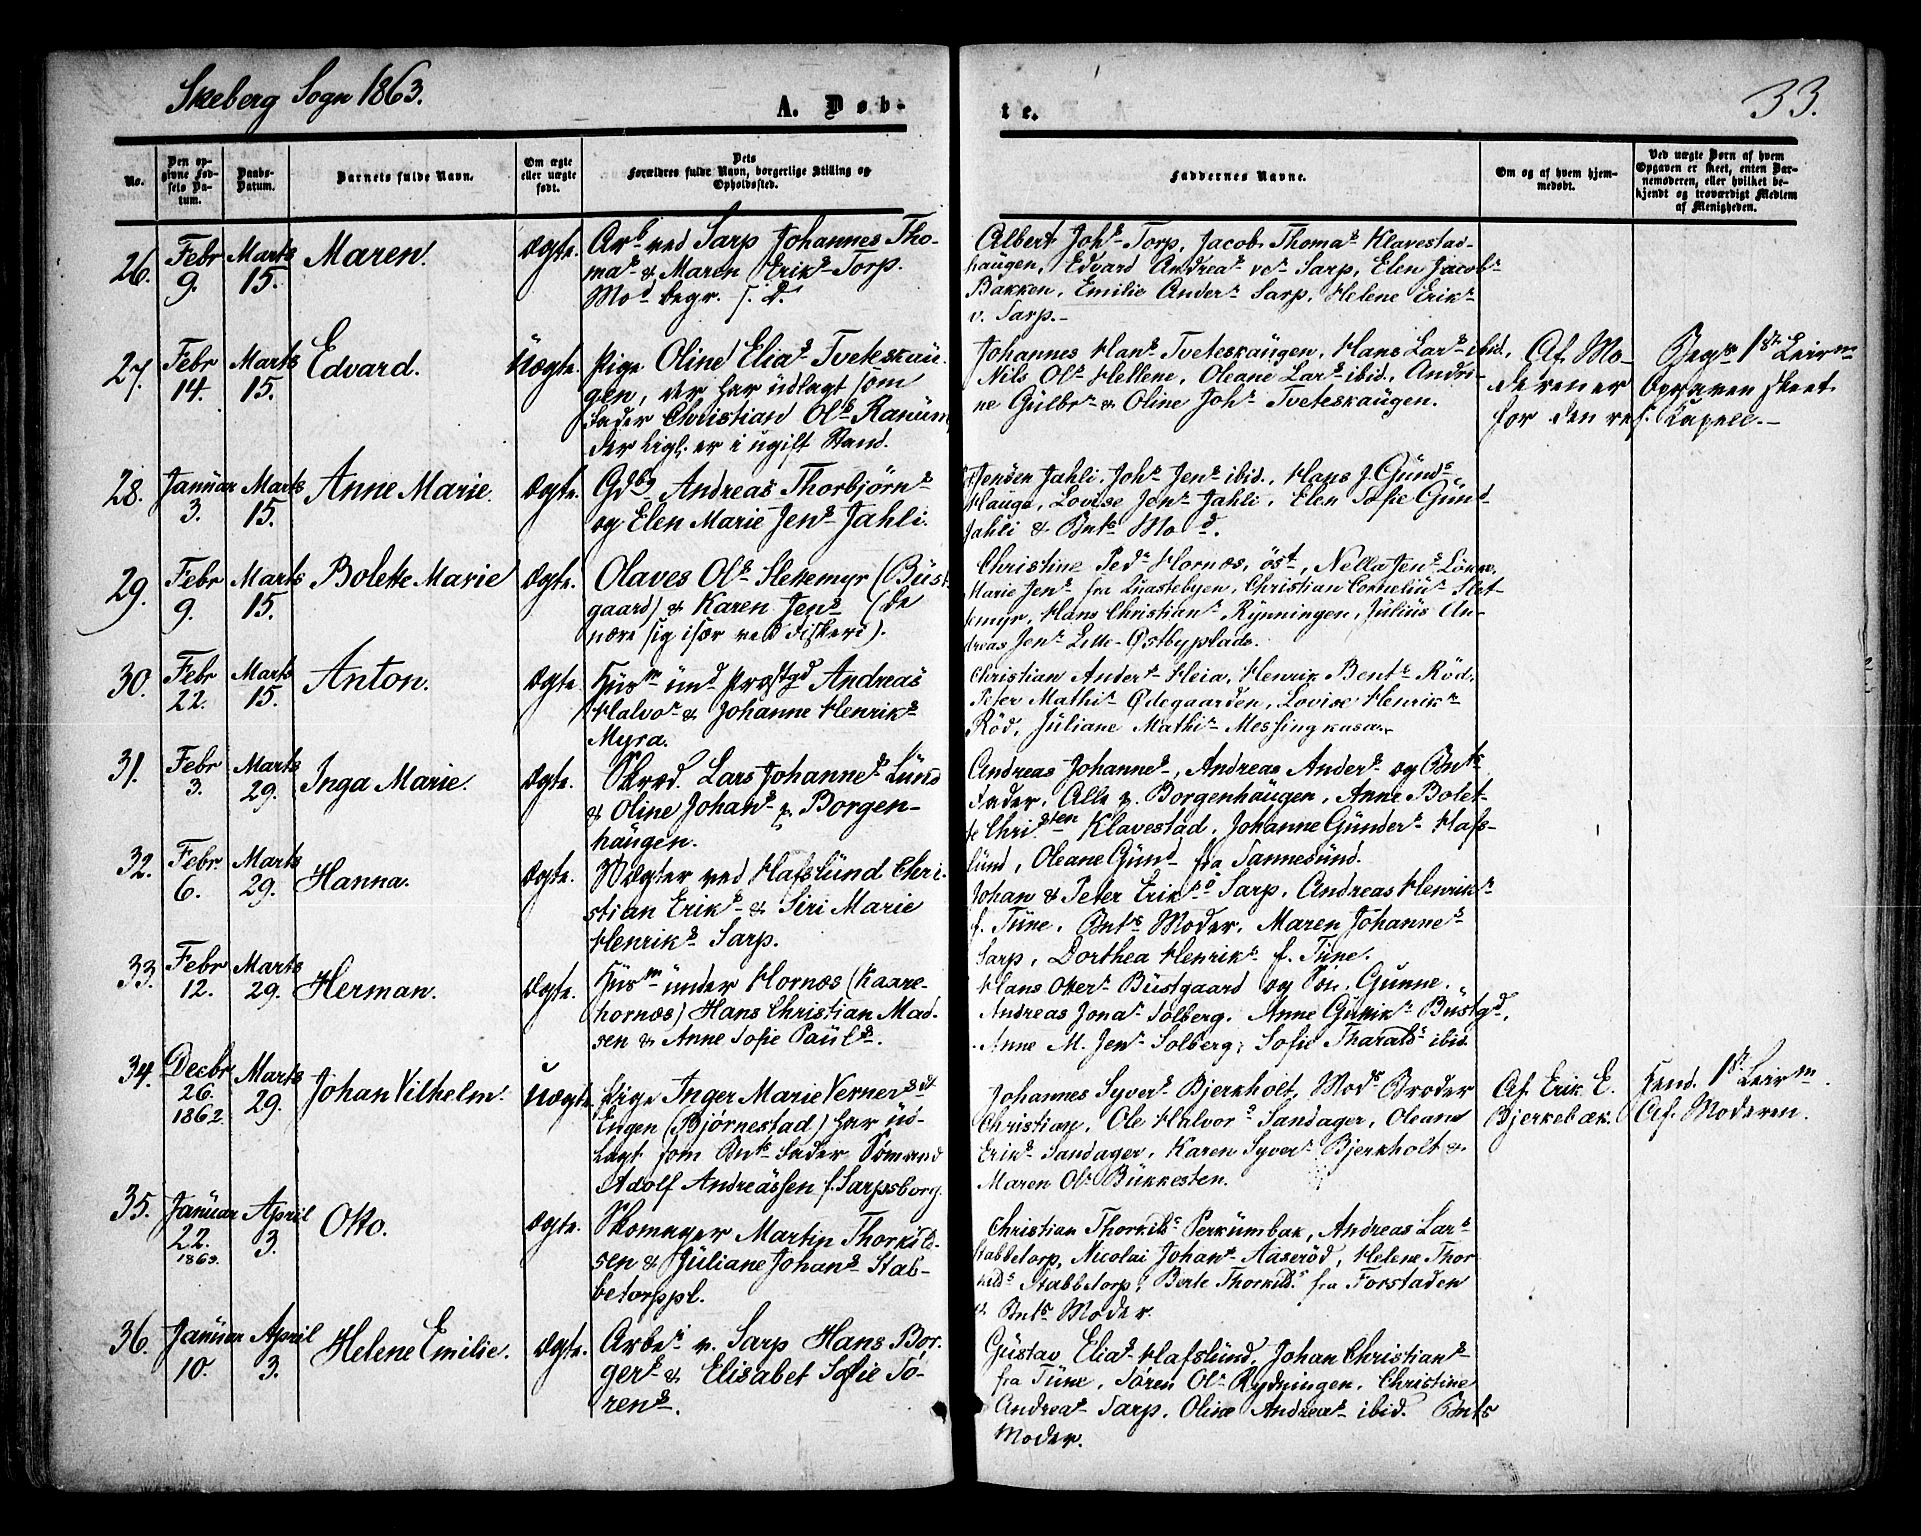 Skeberg Sogn 1863.
A. Døb-
te.
33.
No.
Den op-
givne Fød-
sels Da-
tum.
Daabs-
Datum.
Barnets fulde Navn.
Om ægte
eller uægte
født.
Dets
Forældres fulde Navn, borgerlige Stilling og
Opholdssted.
Faddernes Navne.
Om og af hvem hjem-
medøbt.
Ved uægte Børn af hvem
Opgaven er skeet, enten Bar-
nemoderen, eller hvilket be-
kjendt og troværdigt Medlem
af Menigheden.
26. Febr 9. Marts 15. Maren. Ægte.
Arb ved Sarp Johannes Tho-
mas & Maren Eriks Torp.
Albert Johs Torp, Jacob Thomas Klavestad-
haugen, Edvard Andreas ved Sarp, Elen Jacobs
Bakken, Emilie Anders Sarp, Helene Eriks
v. Sarp.
27. Febr 14. Marts 15. Edvard. Uægte.
Pige Oline Elias Tveteskau-
gen, der har udlagt som
Fader Christian Ols Ranum
der ligl. er i ugift Stand.
Johannes Hans Tveteskaugen, Hans Lars ibid,
Nils Ols Hellene, Oleane Lars ibid, Andri-
ne Gulbrs & Oline Johs Tveteskaugen.
Af Mo-
deren er
for den
1ste Leirm
Opgaven skeet
28. Januar 3. Marts 15. Anne Marie. Ægte.
Gdbr Andreas Thorbjørns
og Elen Marie Jens Jahli.
Jensen Jahli, Johs Jens ibid., Hans J. Gunds
Hauge, Lovise Jens Jahli, Elen Sofie Gund
Jahli & Bnts Mod.
29. Febr 9. Marts 15. Bolette Marie Ægte.
Olaves Ols Slettemyr (Bust-
gaard) & Karen Jens (de
nære sig især ved Fiskeri).
Christine Peds Hornes, øst, Nella Jens
Marie Jens fra Christian Cornelius Slet-
temyr, Hans Christians Rynningen, Julius An-
dreas Jens Lille-Østbyplads.
30. Febr 22. Marts 15. Anton. Ægte.
Husm und Præstgd Andreas
Halvors & Johanne Henriks
Myra.
Christian Anders Heia, Henrik Bents Röd,
Peter Mathis Ødegaarden, Lovise Henriks
Röd, Juliane Mathis Messingkasa.
31. Febr 3. Marts 29. Inga Marie. Ægte.
Skræd. Lars Johannes Lund
& Oline Johans p. Borgen-
haugen.
Andreas Johannes, Andreas Anders og Bnts
Fader. Alle p. Borgenhaugen, Anne Bolet-
te Christen Klavestad, Johanne Gunders Hafs-
lund, Oleane Gund fra Sannesund.
32. Febr 6. Marts 29. Hanna. Ægte.
Vægter ved Hafslund Chri-
stian Eriks & Siri Marie
Henriks Sarp.
Johan & Peter Eriks Sarp, Andreas Henriks
f. Tune, Bnts Moder, Maren Johannes
Sarp, Dorthea Henriks f. Tune.
33. Febr 12. Marts 29. Herman. Ægte.
Husm under Hornæs (Kaare-
hornæs) Hans Christian Mad-
sen & Anne Sofie Pauls.
Hans Otters Bustgaard og Søn, Gunne.
Andreas Jonas Solberg, Anne Bustgd,
Anne M. Jens Solberg, Sofie Tharalds ibid
34. Decbr 26. 1862. Marts 29. Johan Vilhelm. Uægte.
Pige Inger Marie Verners dt
Engen (Bjørnestad) har ud-
lagt som Bnts Fader Sømand
Adolf Andreassen f. Sarpsborg.
Johannes Syvers Bjerkholt, Mods Broder
Christian, Ole Halvors Sandager, Oleane
Eriks Sandager, Karen Syvers Bjerkholt &
Maren Ols Bukkesten.
Af Erik E.
Bjerkebæk.
1st Leirm.
Af Moderen.
35. Januar 22. 1863. April 3. Otto. Ægte.
Skomager Martin Thorkild-
sen & Juliane Johans Stab-
betorppl.
Christian Thorkilds Perkumbak, Andreas Lars
Stabbetorp, Nicolai Johans Aaseröd, Helene Thor-
kilds Stabbetorp, Berte Thorkilds fra Forstaden
& Bnts Moder.
36. Januar 10. April 3. Helene Emilie. Ægte.
Arbei v. Sarp Hans Bor-
gers & Elisabet Sofie Sö-
rens.
Gustav Elias Hafslund, Johan Christians
fra Tune, Sören Ols Rydningen, Christine
Andreas Sarp, Oline Andreas ibid. Bnts
Moder.